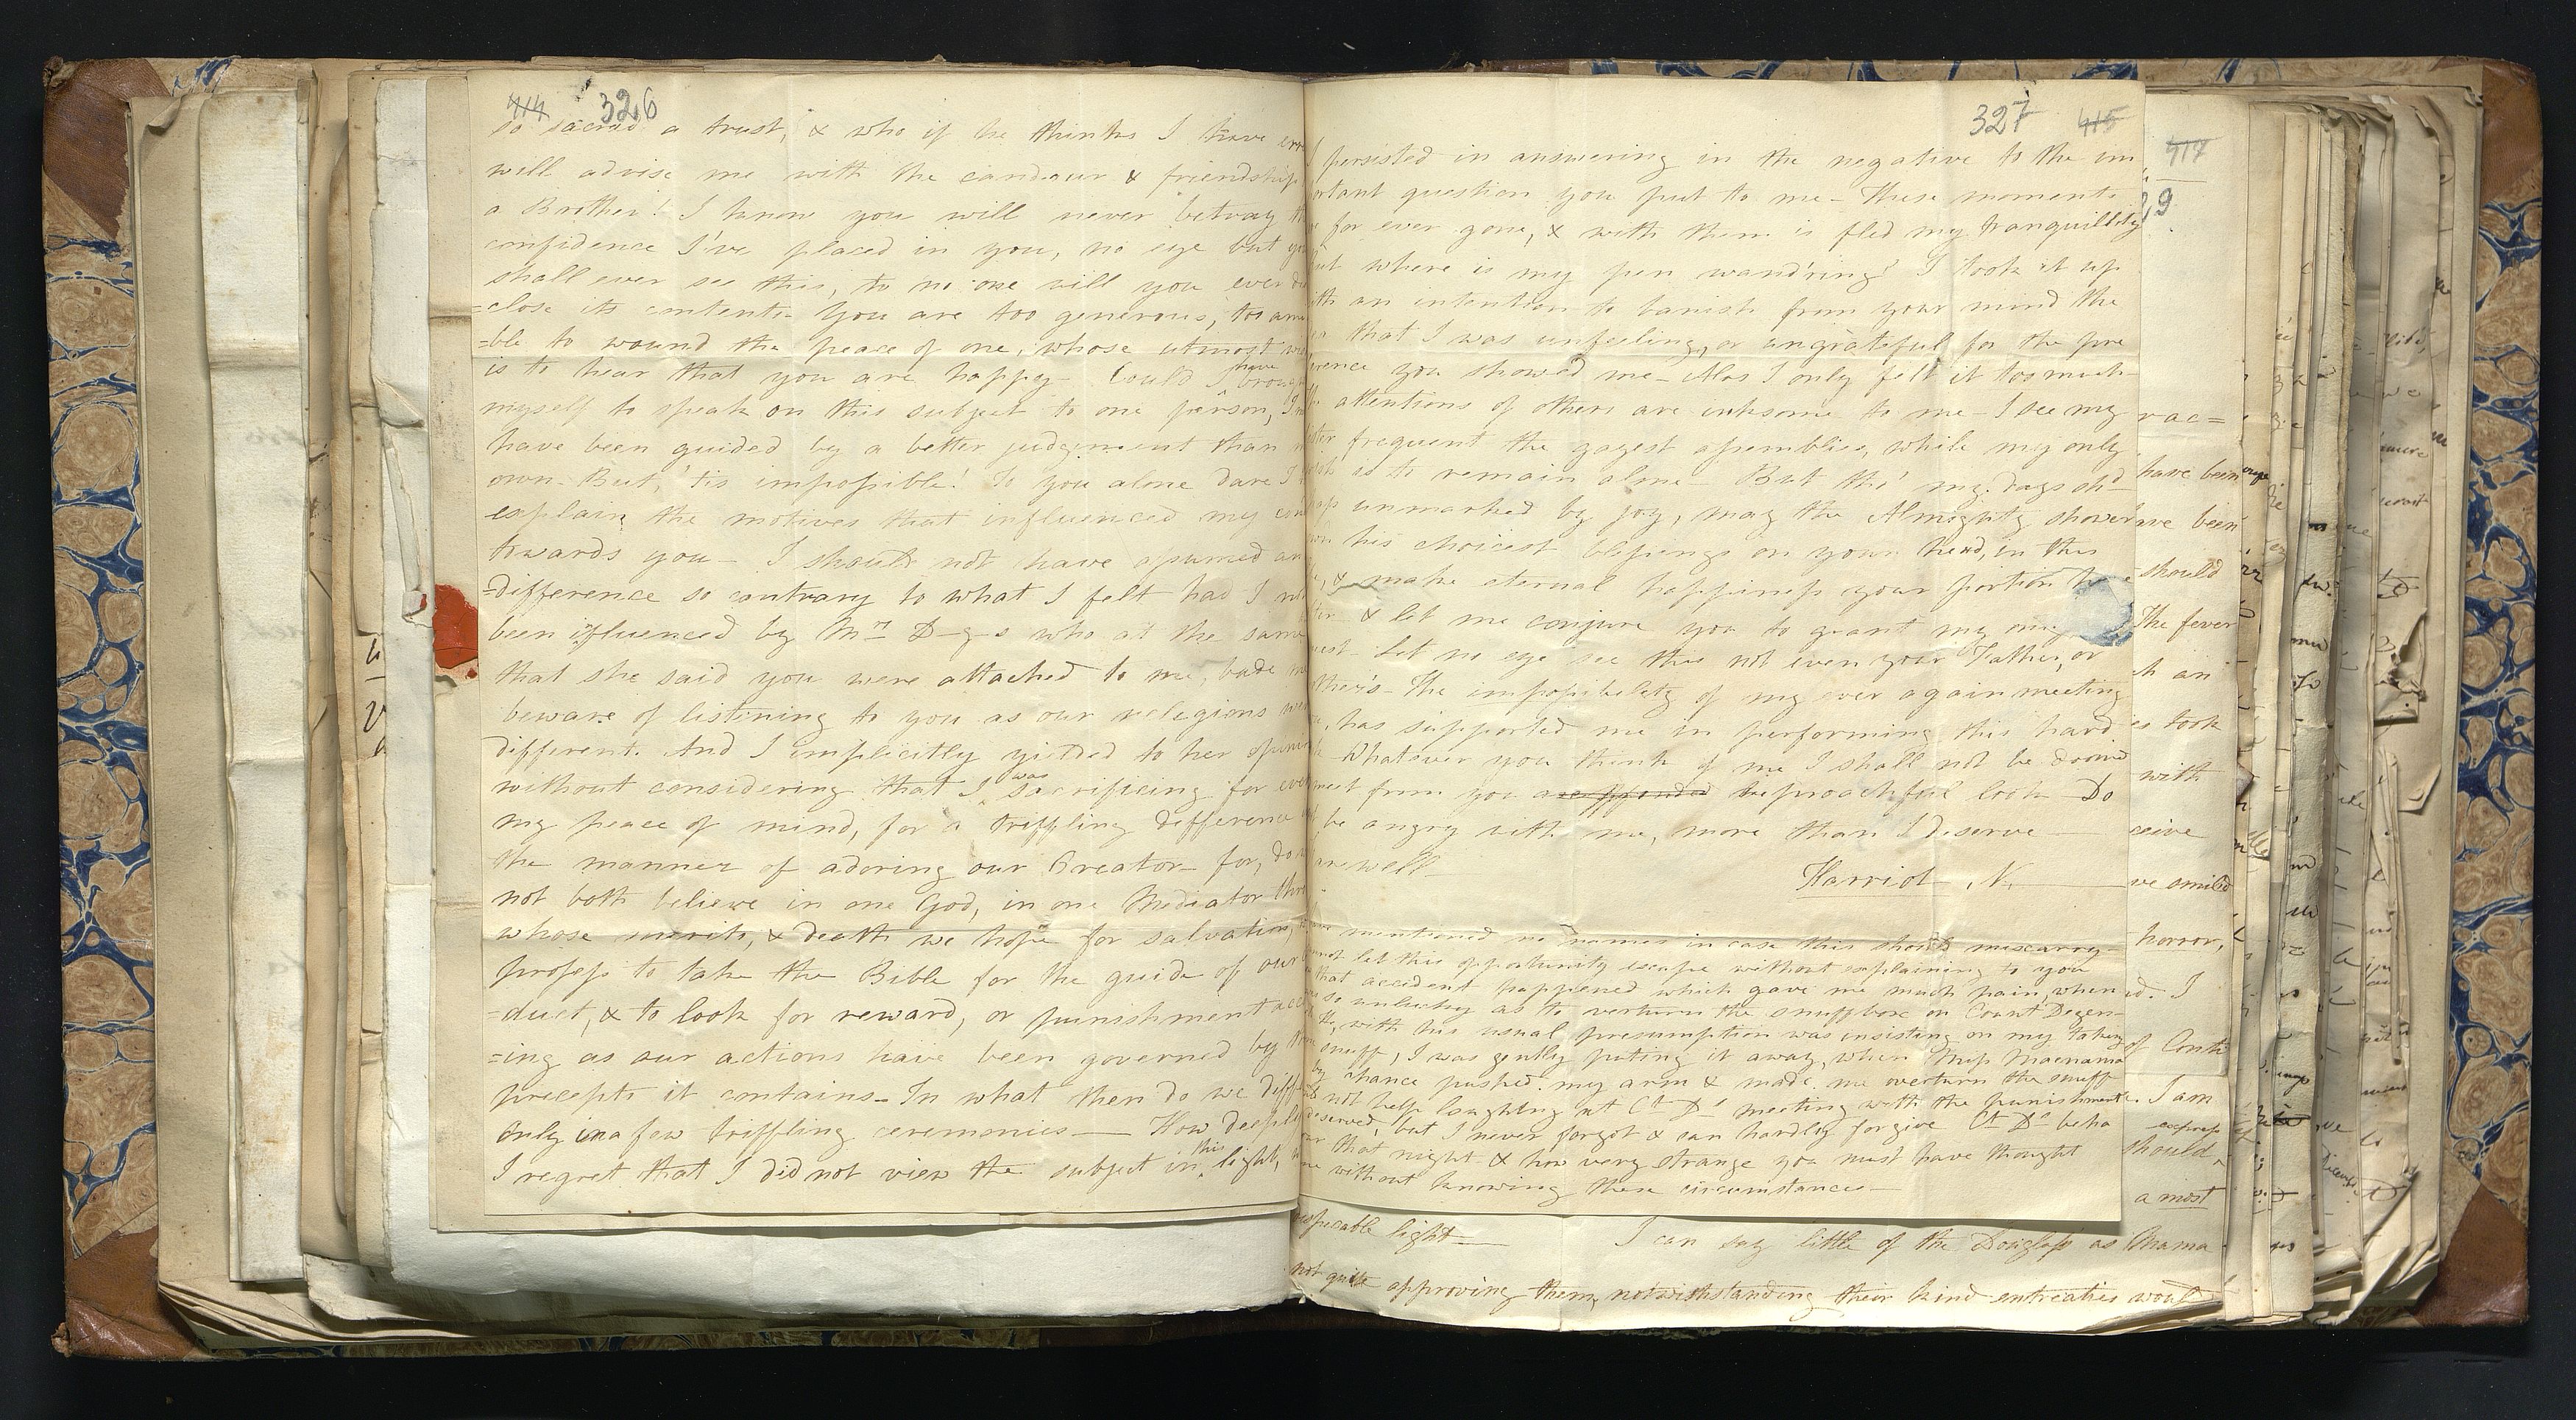 414 326
so sacred a trust, & who if he thinks I have
will advise me with the candour & friendship
a Brother! I know you will never betray
confidence I've placed in you, no eye but
shall ever see this, to no one will you ever
=close its contents– You are too generous, too
=ble to wound the peace of one, whose utmost
is to hear that you are happy– Could I have
myself to speak on this subject to one person,
have been guided by a better judgment than
own– But, 'tis impossible! To you alone dare I
explain the motives that influenced my
towards you– I should not have assumed an
=difference so contrary to what I felt had I
been ifluenced by Mrs D–g–s who at the same
that she said you were attached to me, bade
beware of listening to you as our religions
different. And I implicitly yielded to her
without considering that I was sacrificing for
my peace of mind, for a triffling difference
the manner of adoring our Creator– for, do
not both believe in one God, in one Mediator
whose merits, & death we hope for salvation,
profess to take the Bible for the guide of our
=duct, & to look for reward, or punishment
=ing as our actions have been governed by
precepts it contains– In what then do we
only in a few triffling ceremonies— How deeply
I regret that I did not view the subject in this light,
327 415
I persisted in answering in the negative to the im
ortant question you put to me– These moments
for ever gone, & with them is fled my tranquillity
but where is my pen wand'ring? I took it up
with an intention to banish from your mind the
that I was unfeeling, or ungrateful for the pre
erence you showed me– Alas I only felt it too much–
attentions of others are irksome to me– I see my
frequent the gayest assemblies, while my only
is to remain alone– But tho' my days shd
unmarked by joy, may the Almighty shower
his choicest blessings on your head, in this
& make eternal happiness your portion
& let me conjure you to grant my
Let no eye see this not even your Father, or
The impossibility of my ever again meeting
has supported me in performing this hard
Whatever you think of me I shall not be doomd
meet from you a reproachful look– Do
be angry with me, more than I deserve—
Farewell–
Harriot N.
mentioned no names in case this should miscarry–
not let this opportunity escape without explaining to you
that accident happened which gave me much pain, when
so unlucky as to overturn the snuffbox on Count Degen–
with his usual presumption was insisting on my taking
snuff, I was gently puting it away, when Miss Macnama
by chance pushed my arm & made me overturn the snuff
not help laughing at Ct Ds meeting with the punishment
deserved, but I never forgot & can hardly forgive Ct Ds beha
that night & how very strange you must have thought
me without knowing these circumstances–
417
29
rac=
have been
have been
should
The fever
an
look
with
ceive
ve smiled
horror,
I
of
I am
should
a most
light— I can say little of the Douglass as Mama
not quite approving them, notwithstanding their kind entreaties would